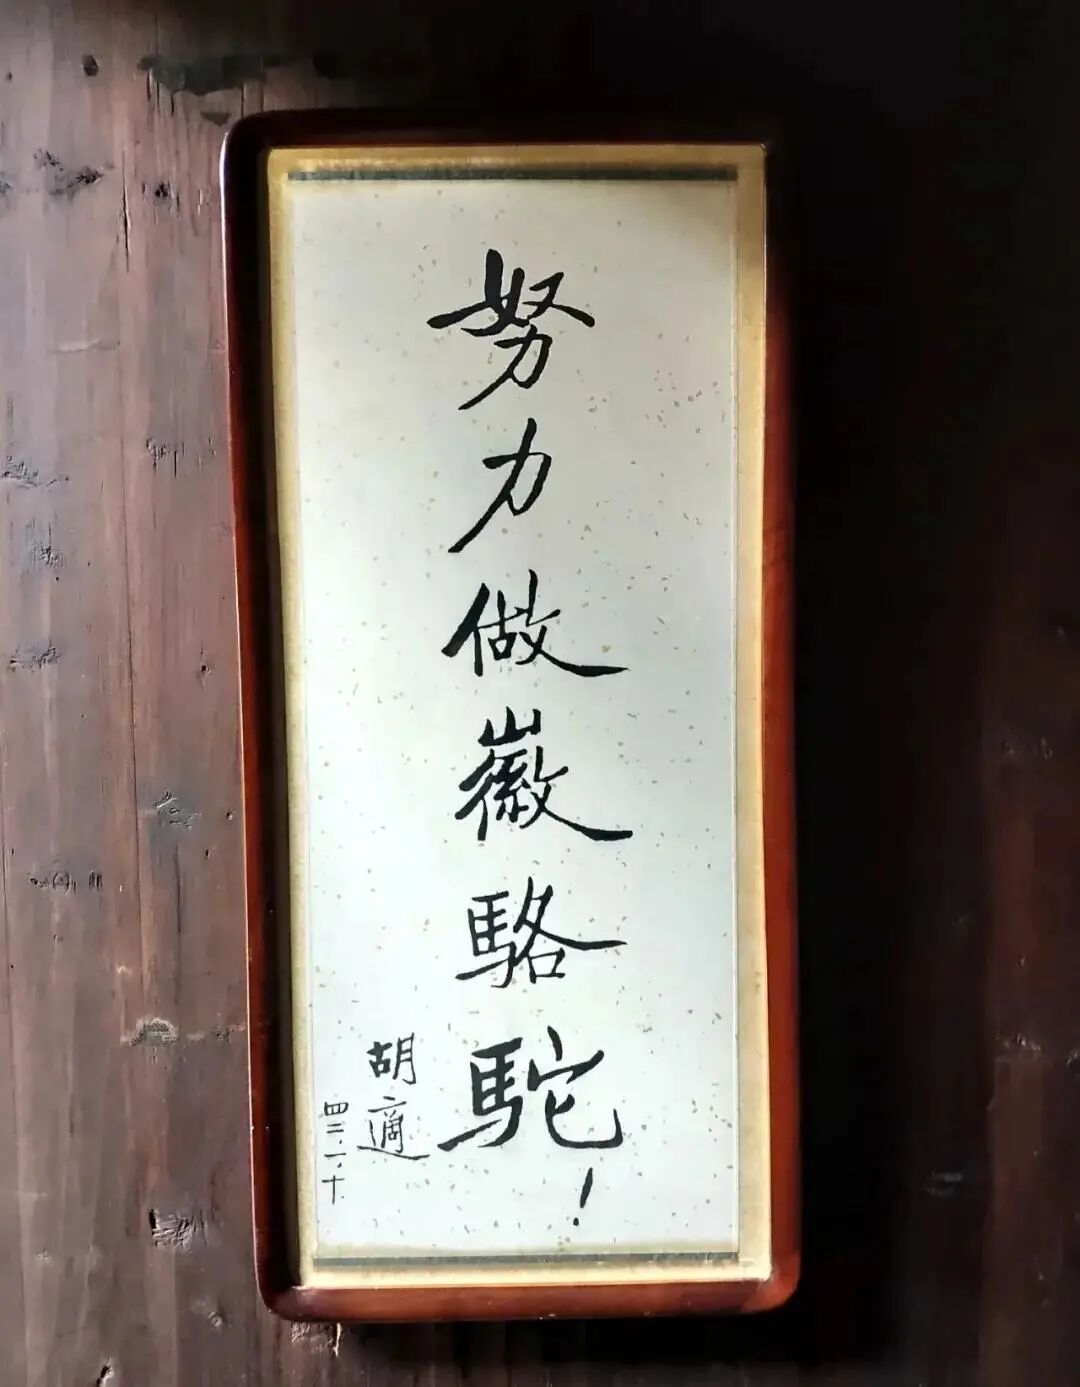 努力做徽駱駝！
胡適
四二.一.十.